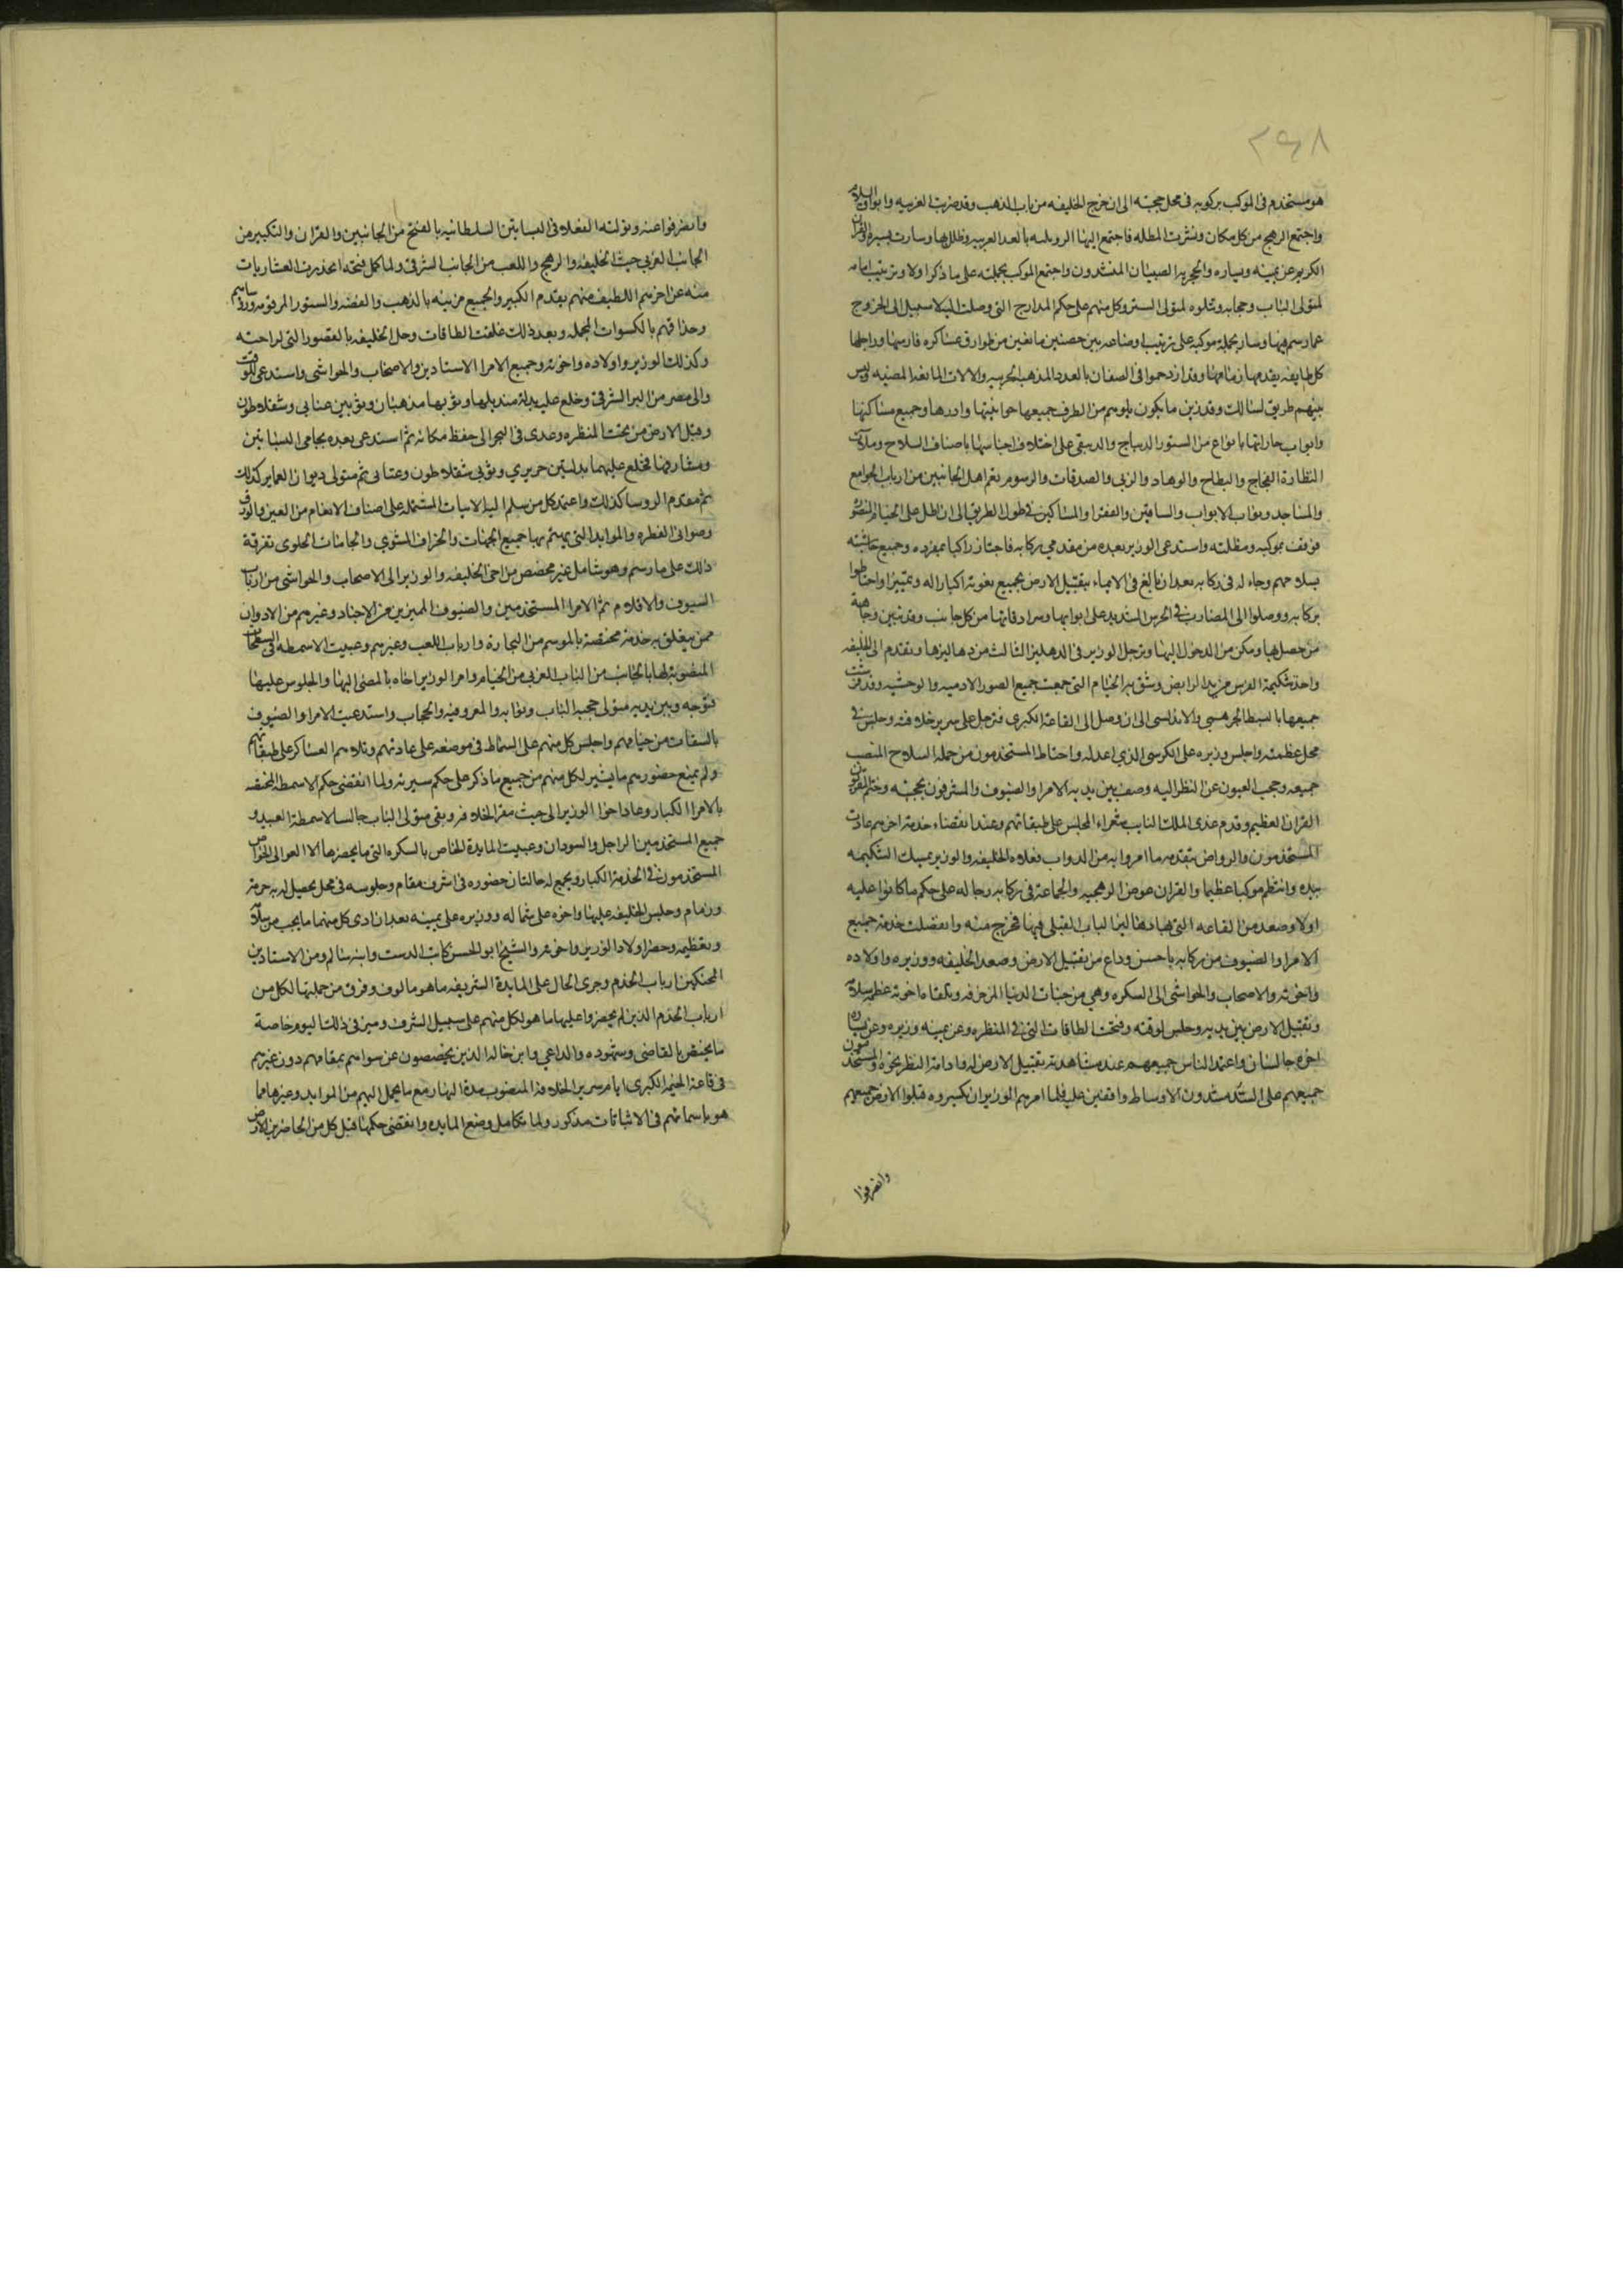 ٢٩٨
هو مستخدم في الموكب بركوبه في محل حجبته الى ان خرج الخليفه من باب الذهب وقد ضربت الغربيه وابواق السلام
واجتمع الرهج من كل مكان ونشرت المظله فاجتمع اليها الرويلسه بالعدد الغريبه وظلل بها وسارت بسيره والقران
الكريم عن يمينه ويساره والحجريه الصبيان المنشدون واجتمع الموكب بجملته على ما ذكر اولا وترتيب امامه
لمتولى الباب وحجابه وتلوه لمتولى الستر وكل منهم على حكم المدارج التي وصلت اليه لا سبيل الى الخروج
عما رسم فيها وسار بجملة موكبه على ترتيب اوضاعه بين حصنين مانعين من طوارق عساكره فارسها وراجلها
كل طايفه يقدمها زمامها وقد ازدحموا في الصفان بالعدد المذهبه الحربيه والالات المانعه المضيه وليس
بينهم طريق لسالك وقد زين ما يكون بلويهم من الطرف جميعها حوانيتها وادرها وجميع مساكنها
وابواب حاراتها بانواع من الستور الديباج والدبيقي على اختلاف اجناسها باصناف السلاح وملات
النظارة الفجاج والبطاح والوهاد والربى والصدقات والرسوم تعم اهل الجانبين من ارباب الجوامع
والمساجد وبواب الابواب والسقايين والفقرا والمساكين في طول الطريق الى ان اطل على الخيام المنصوبه
فوقف بموكبه ومظلته واستدعى الوزير بعده من مقدمي ركابه فاجتاز راكبا بمفرده وجميع حاشيته
بسلاحهم رجاله في ركابه بعد ان بالغ في الايماء بتقبيل الارض بجميع بغويه اكبارا له وتمييزا واحتاطوا
بركابه ووصلوا الى المضارب في الحرس الشديد على ابوابها وسرادقاتها من كل جانب وقد تبين وجاهة
من حصل بها ومكن من الدخول اليها وترجل الوزير في الدهليز الثالث من دهاليزها وتقدم الى الخليفه
واخذ شكيمة الفرس من يد الرابض وشق به الخيام التي جمعت جميع الصور الادميه والوحشيه وقد فرشت
جميعها بالبسط الجهرمي والاندلسي الى ان وصل الى القاعة الكبرى فترجل على سرير خلافته وجلس في
محل عظمته واجلس وزيره على الكرسي الذي اعد له واحتاط المستخدمون من حملة السلاح المنصب
جميعه وحجب العيون عن النظر اليه وصف بين يديه الامرا والضيوف والمشرفون بحجبته وختم المقريون
القران العظيم وقدم عدي الملك النايب شعراء المجلس على طبقاتهم وعند انقضاء خدمة اخرهم عادت
المستخدمون والرواض بتقدمه ما امروا به من الدواب فعلاه الخليفه والوزير يمسك الشكيمه
بيده وانتظم موكبا عظيما والقران عوض الرهجيه والجماعة في ركابه رجاله على حكم ما كانوا عليه
اولا وصعد من القاعه التي بها دهاليز الباب القبلي فيها فخرج منه وانفصلت خدمة جميع
الامرا والضيوف من ركابه باحسن وداع من تقبيل الارض وصعد الخليفه ووزيره واولاده
واخوته والاصحاب والحواشي الى السكره وهي من جنات الدنيا المزخرفه وتلقاه اخوته عظم سلام
وتقبيل الارض بين يديه وجلس لوقته وفتحت الطاقات التي في المنظره وعن يمينه وزيره وعن يساره
اخوه جالسان واعتمد الناس جميعهم عند مشاهدته تقبيل الارض له وادامة النظر نحوه والمستخدمون
جميعهم على السد مشدودن الاوساط واقفين عليه فلما امرهم الوزير ان يكسروه قبلوا الارض جميعهم
وانصرفوا
وانصرفوا عنه وتولته الفعلة في البساتين السلطانيه بالفتح من الجانبين والقران والتكبير من
الجانب الغربي حيث الخليفه والرهج واللعب من الجانب الشرقي ولما كمل فتحه انحدرت العشاريات
منه عن اخرهم اللطيف منهم يقدم الكبير والجميع مزينه بالذهب والفضه والستور المرقومه ورؤساهم
وخدامهم بالكسوات الجمله وبعد ذلك غلقت الطاقات وحل الخليفه بالقصور التي لراحته
وكذلك الوزير واولاده واخوته وجميع الامرا الاستادين والاصحاب والحواشي واستدعى للوقت
والى مصر من البر الشرقي وخلع عليه بدلة منديلها وثوبها مذهبان وثوبين عتابي وسقلاطون
وقبل الارض من تحت المنظره وعدى في البحر الى حفظ مكانه ثم استدعى بعده بحامي البساتين
ومشارفها فخلع عليهما بدلتين حريري وثوبي سقلاطون وعتابي ثم متولى ديوان العماير كذلك
ثم مقدم الروسا كذلك واعتمد كل من سلم اليه الاثباتات المشتمله على اصناف الانعام من العين والورق
وصواني الفطره والموايد التي يهتم بها جميع الجهات والخراف المشوي والجامات الحلوى تفرقة
ذلك على ما رسم وهو شامل غير مخصص من اخي الخليفه والوزير الى الاصحاب والحواشي من ارباب
السيوف والاقلام ثم الامرا المستخدمين والضيوف المميزين من الاجناد وغيرهم من الادوان
ممن يتعلق به خدمة مختصة بالموسم من البحارة وارباب اللعب وغيرهم وعبيت الاسمطه في المسطحات
المنصوبة لها بالجانب من الباب الغربي من الخيام وامر الوزير اخاه بالمضي اليها والجلوس عليها
فتوجه وبين يديه متولى حجبة الباب ونوابه والمعروفيه والحجاب واستدعيت الامرا والضيوف
بالسقات من خيامهم واجلس كل منهم على السماط في موضعه على عادتهم وتلاهم العساكر على طبقاتهم
ولم يمنع حضورهم ما يسير لكل منهم من جميع ما ذكر على حكم سيرته ولما انقضى حكم الاسمطة المختصه
بالامرا الكبار وعاد اخو الوزير الى حيث مقر الخلافه وبقي متولى الباب جالسا لاسمطة العبيد و
جميع المستخدمين الراجل والسودان وعبيت المايدة الخاص بالسكره التي ما يحضرها الا العوالي الخواص
المستخدمون في الخدمة الكبار ويجمع له حالتان حضوره في اشرف مقام وجلوسه في محل يحصل له به حرمة
وذمام وجلس الخليفه عليها واخوه على شماله ووزيره على يمينه بعد ان ادى كل منهما ما يجب من سلام
وتعظيم وحضر اولاد الوزير واخوته والشيخ ابو الحسن كاتب الدست وابنه سالم ومن الاستادين
المحنكين ارباب الخدم وجرى الحال على المايدة الشريفه ما هو مالوف وفرق من جملتها لكل من
ارباب الخدم الذين لم يحضروا عليها ما هو لكل منهم على سبيل الشرف وميز في ذلك اليوم خاصة
ما يختص بالقاضي وشهوده والداعي وابن خاله الذين يخصصون عن سواهم بمقامهم دون غيرهم
في قاعة الخيمة الكبرى امام سرير الخلافة المنصوب مدة النهار مع ما يحمل اليهم من الموايد وغيرها مما
هو باسمائهم في الاثباتات مذكور ولما تكامل وضع المايده وانقضى حكمها قبل كل من الحاضرين الارض